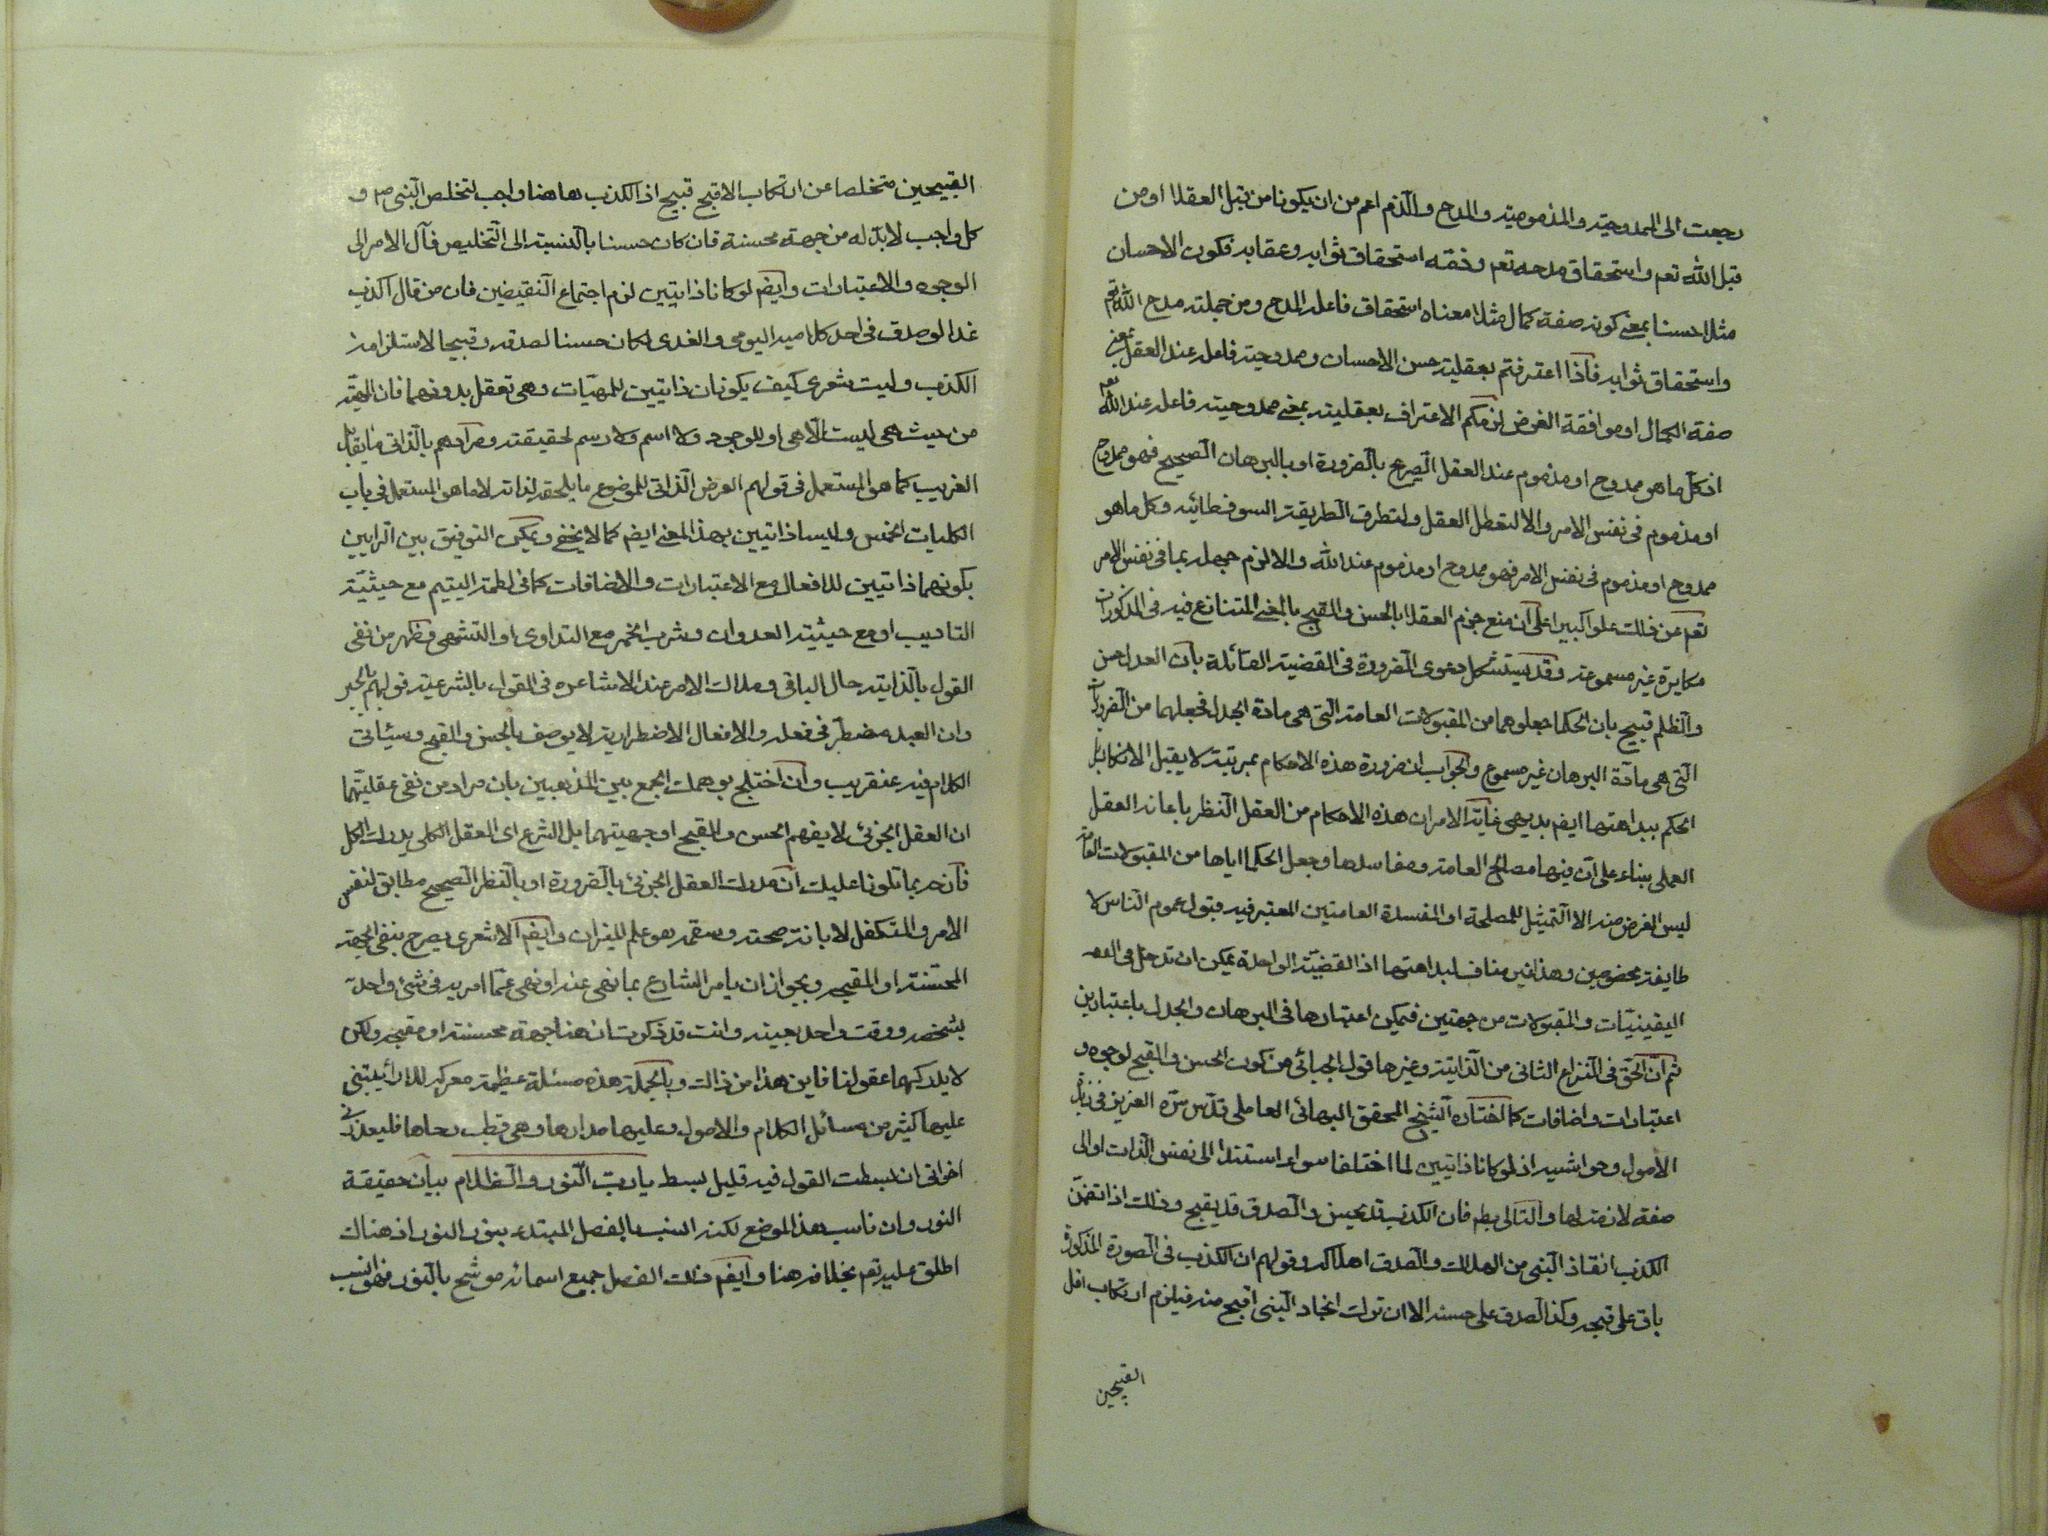 رجعت الى الممدوحية والمذمومية والمدح والذم اعم من ان يكونا من قبل العقلا او من
قبل الله تعم واستحقاق مدحه تعم وذمه استحقاق ثوابه وعقابه فكون الاحسان
مثلا حسنا بمعنى كونه صفة كمال مثلا معناه استحقاق فاعله المدح ومن جملته مدح الله تعم
واستحقاق ثوابه فاذا اعترفتم بعقلية حسن الاحسان وممدوحية فاعله عند العقل بمعنى
صفة الكمال او موافقة الغرض لزمكم الاعتراف بعقليته بمعنى ممدوحية فاعله عند الله تعم
اذ كل ما هو ممدوح او مذموم عند العقل الصريح بالضرورة او بالبرهان الصحيح فهو ممدوح
او مذموم فى نفس الامر والا لتعطل العقل ولتطرق الطريقة السوفسطائيه وكل ما هو
ممدوح او مذموم فى نفس الامر فهو ممدوح او مذموم عند الله والا لزم جهله بما فى نفس الامر
تعم عن ذلك علوا كبيرا على ان منع جزم العقلا بالحسن والقبح بالمعنى المتنازع فيه فى المذكورات
مكابرة غير مسموعة وقد يستشكل دعوى الضرورة فى القضية القائلة بان العدل حسن
والظلم قبيح بان الحكما جعلوهما من المقبولات العامة التى هى مادة الجدل فجعلهما من الضروريات
التى هى مادة البرهان غير مسموع والجواب ان ضرورة هذه الاحكام بمرتبة لا يقبل الانكار بل
الحكم ببداهتها ايضم بديهى غاية الامر ان هذه الاحكام من العقل النظر باعانة العقل
العملى بناء على ان فيها مصالح العامة ومفاسدها وجعل الحكما اياها من المقبولات العامة
ليس الغرض منه الا التمثيل للمصلحة او المفسدة العامتين المعتبر فيه قبول عموم الناس لا
طايفة مخصوصين وهذا غير مناف لبداهتها اذ القضية الواحدة يمكن ان تدخل فى
اليقينيات والمقبولات من جهتين فيمكن اعتبارها فى البرهان والجدل باعتبارين
ثم ان الحق فى النزاع الثانى من الذاتية وغيرها قول الجبائى من كون الحسن والقبح لوجوه و
اعتبارات واضافات كما اختاره الشيخ المحقق البهائى العاملى قدس سره العزيز فى زبدة
الاصول وحواشيه اذ لو كانا ذاتيين لما اختلفا سواء استندا الى نفس الذات او الى
صفة لازمة لها والتالى بطم فان الكذب قد يحسن والصدق قد يقبح وذلك اذا تضمن
الكذب انقاذ النبى من الهلاك والصدق اهلاكه وقولهم ان الكذب فى الصورة المذكورة
باق على قبحه وكذا الصدق على حسنه الا ان ترك انجاد النبى اقبح منه فيلزم ارتكاب اقل
القبيحين
القبيحين متخلصا عن ارتكاب الاقبح قبيح اذ الكذب هاهنا واجب لتخلص النبى ص و
كل واجب لا بد له من جهة محسنة فان كان حسنا بالنسبة الى التخليص فآل الامر الى
الوجوه والاعتبارات وايضم لو كانا ذاتيين لزم اجتماع النقيضين فان من قال اكذب
غدا لو صدق فى احد كلاميه اليومى والغدى لكان حسنا لصدقه وقبيحا لاستلزامه
الكذب وليت شعرى كيف يكونان ذاتيين للمهيات وهى تعقل بدونهما فان المهية
من حيث هى ليست الا هى او للوجود ولا اسم ولا رسم لحقيقته ومرادهم بالذاتى ما يقابل
الغريب كما هو المستعمل فى قولهم العرض الذاتى للموضوع ما يلحقه لذاته لا ما هو المستعمل فى باب
الكليات الخمس وليسا ذاتيين بهذا المعنى ايضم كما لا يخفى ويمكن التوفيق بين الرايين
بكونهما ذاتيين للافعال مع الاعتبارات والاضافات كما فى لطمة اليتيم مع حيثية
التاديب او مع حيثية العدوان وشرب الخمر مع التداوى او التشهى وظهر من نفى
القول بالذاتية حال الباقى وملاك الامر عند الاشاعره فى القول بالشرعية قولهم بالجبر
وان العبد مضطر فى فعله والافعال الاضطرارية لا يوصف بالحسن والقبح وسيأتى
الكلام فيه عنقريب وان اختلج بوهمك الجمع بين المذهبين بان مراد من نفى عقليتهما
ان العقل الجزئى لا يفهم الحسن والقبح او جهيتهما بل الشرع اى العقل الكلى يدرك الكل
فآن حر بما تلونا عليك ان مدرك العقل الجزئى بالضرورة او بالنظر الصحيح مطابق لنفس
الامر والمتكفل لابانة صحته وسقمه هو علم الميزان وايضم الاشعرى يصرح بنفى الجهة
المحسنة او المقبحه وبجواز ان يامر الشارع بما نهى عنه او نهى عما امر به فى شئ واحد
بشخصه ووقت واحد بعينه وانت قد ذكرت ان هنا جهة محسنة او مقبحه ولكن
لا يدركهما عقولنا فاين هذا من ذلك وبالجملة هذه مسئلة عظيمة معركة للاراء يبتنى
عليها كثير من مسائل الكلام والاصول وعليها مدارها وهى قطب رحاها فليعذرنى
اخوانى ان بسطت القول فيه قليل بسط يا رب النور والظلام بيان حقيقة
النور وان ناسب هذا الموضع لكنه انسب بالفصل المبتدء بنور النور اذ هناك
اطلق عليه تعم بخلافه هنا وايضم ذلك الفصل جميع اسمائه موشح بالنور فهو انسب